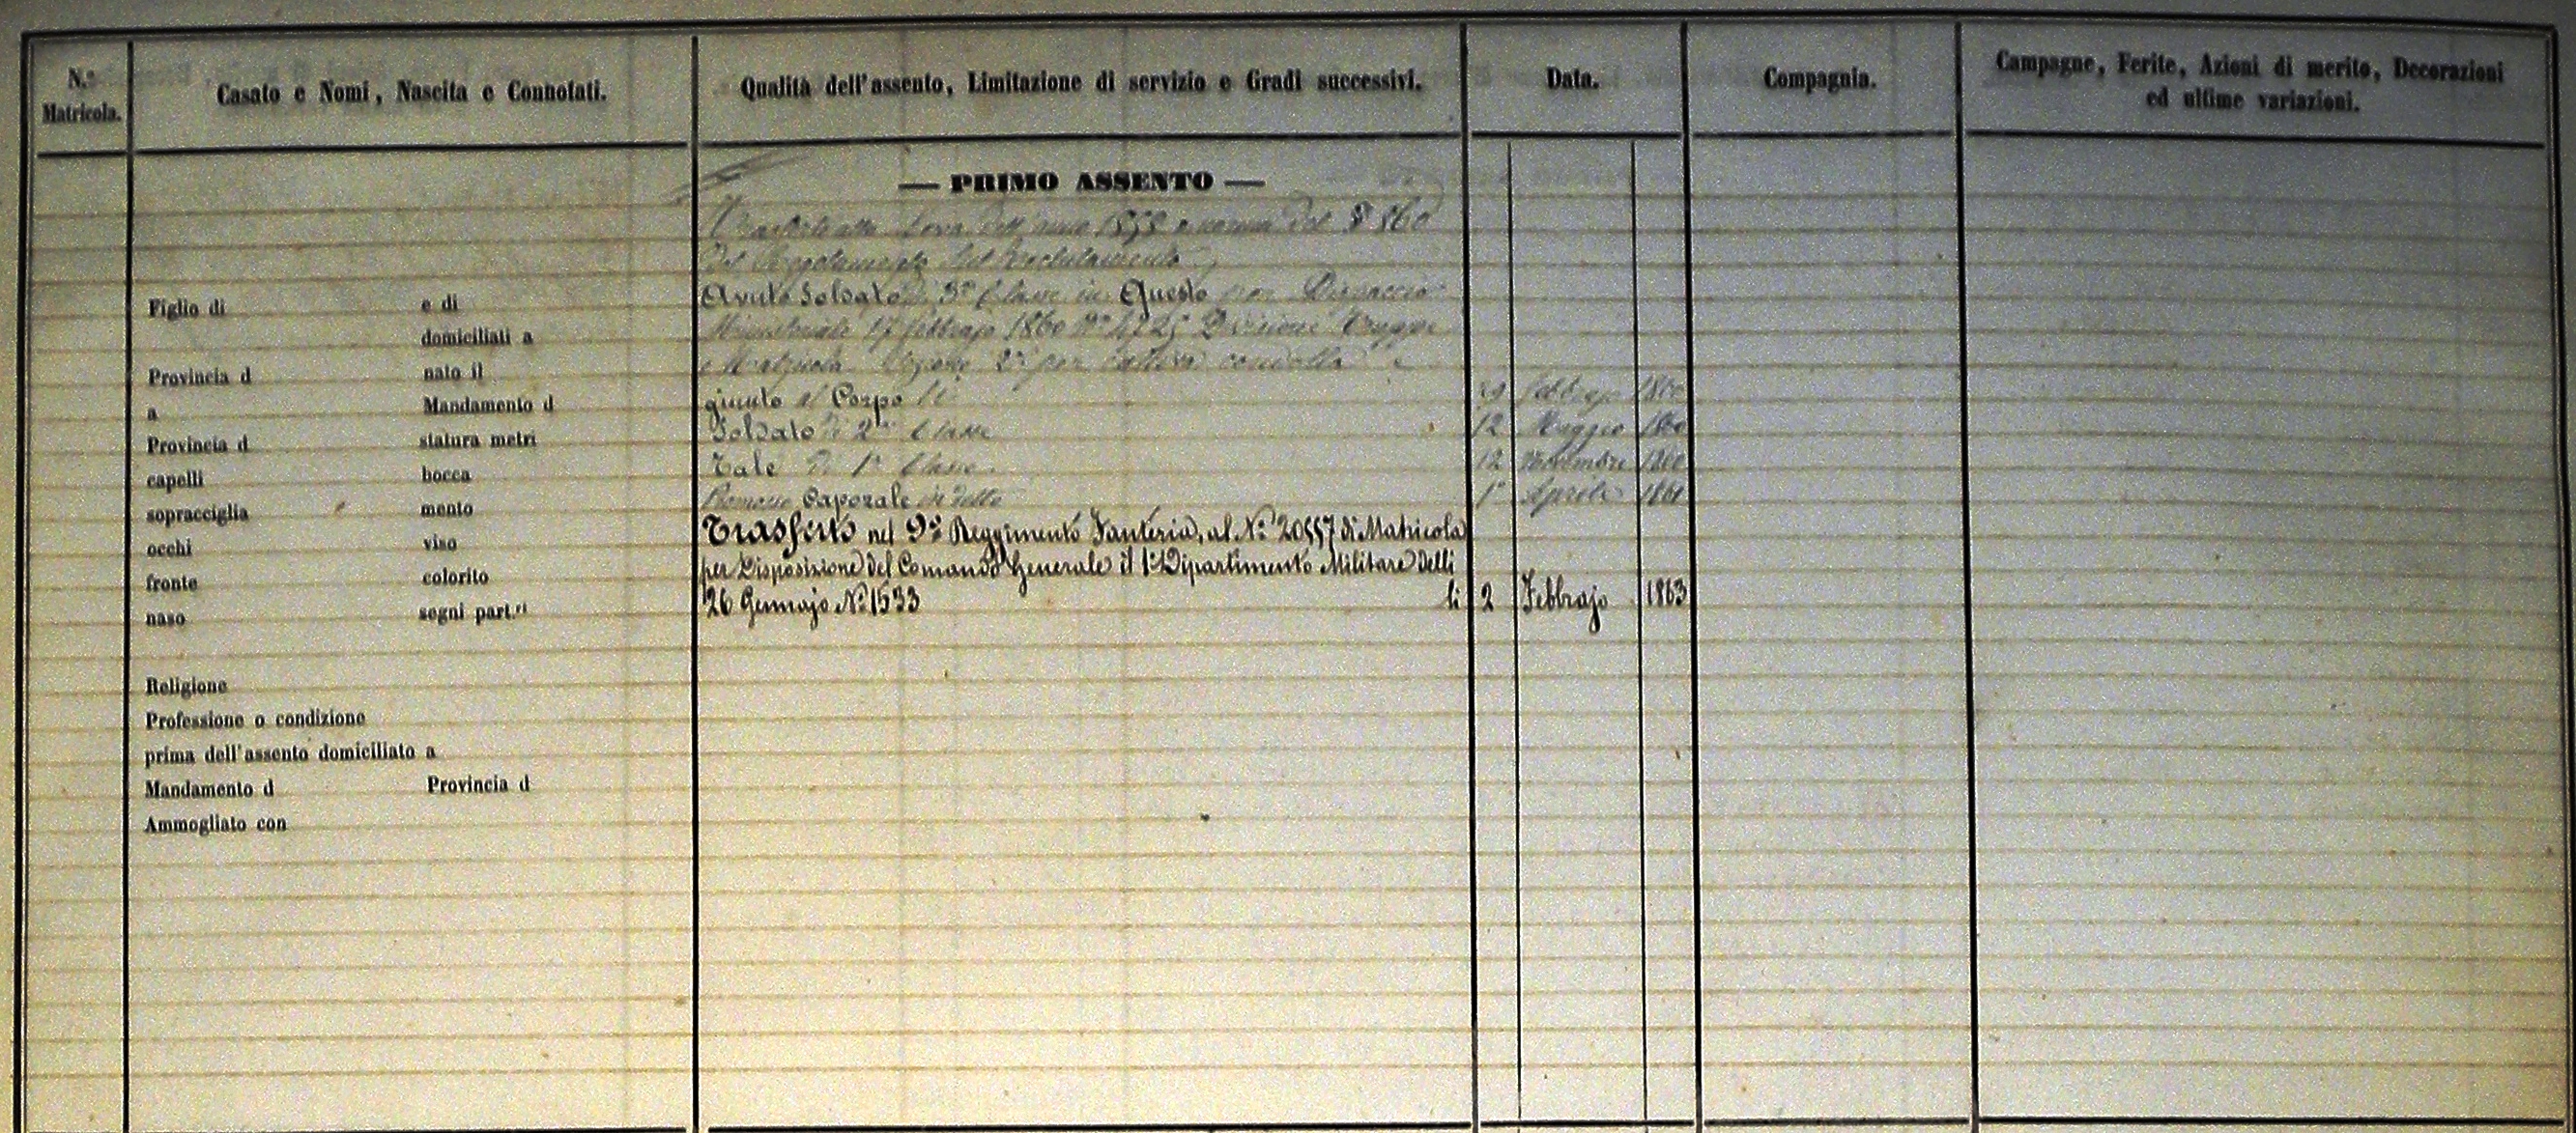 N.° Matricola.
Casato e Nomi, Nascita e Connotati.
Qualità dell'assento, Limitazione di servizio e Gradi successivi.
Data.
Compagnia.
Campagne, Ferite, Azioni di merito, Decorazioni
ed ultime variazioni.
— PRIMO ASSENTO —
leva dell'anno a norma del § 860
del Regolamento sul Reclutamento
Avuto Soldato di 3ª Classe in Questo per Dispaccio
Ministeriale 17 febbrajo 1860 N° Divisione Truppe
e Matricola Sezione 2ª per cattiva condotta e
giunto al Corpo li febbrajo 1860
Soldato di 2ª Classe 12 Maggio 1860
Tale di 1ª Classe 12 Novembre 1860
Promosso Caporale in detto 1° Aprile 1861
Trasferto nel 9° Reggimento Fanteria, al N° 20557 di Matricola
per Disposizione del Comando Generale il 1° Dipartimento Militare delli
26 Gennajo N° 1533 li 2 Febbrajo 1863
Figlio di e di
domiciliati a
Provincia d nato il
a Mandamento d
Provincia d statura metri
capelli bocca
sopracciglia mento
occhi viso
fronte colorito
naso segni part.ri
Religione
Professione o condizione
prima dell'assento domiciliato a
Mandamento d Provincia d
Ammogliato con